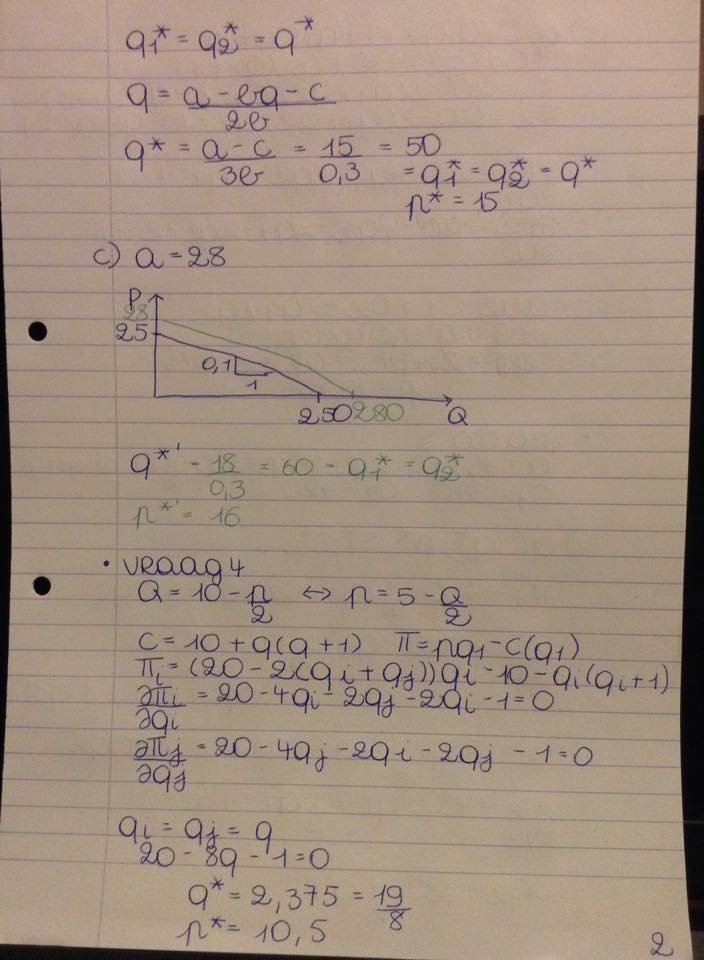 q1* = q2* = q*
q = (a - bq - c)/2b
q* = (a - c)/3b = 15/0,3 = 50
= q1* = q2* = q*
p* = 15
c) a = 28
P
28
25
0,1
1
250 280 Q
q*' = 18/0,3 = 60 = q1* = q2*
p*' = 16
• vraag 4
Q = 10 - p/2 ↔ p = 5 - Q/2
C = 10 + q(q + 1) π = pq1 - C(q1)
πi = (20 - 2(qi + qj))qi - 10 - qi(qi + 1)
∂πi/∂qi = 20 - 4qi - 2qj - 2qi - 1 = 0
∂πj/∂qj = 20 - 4qj - 2qi - 2qj - 1 = 0
qi = qj = q
20 - 8q - 1 = 0
q* = 2,375 = 19/8
p* = 10,5
2